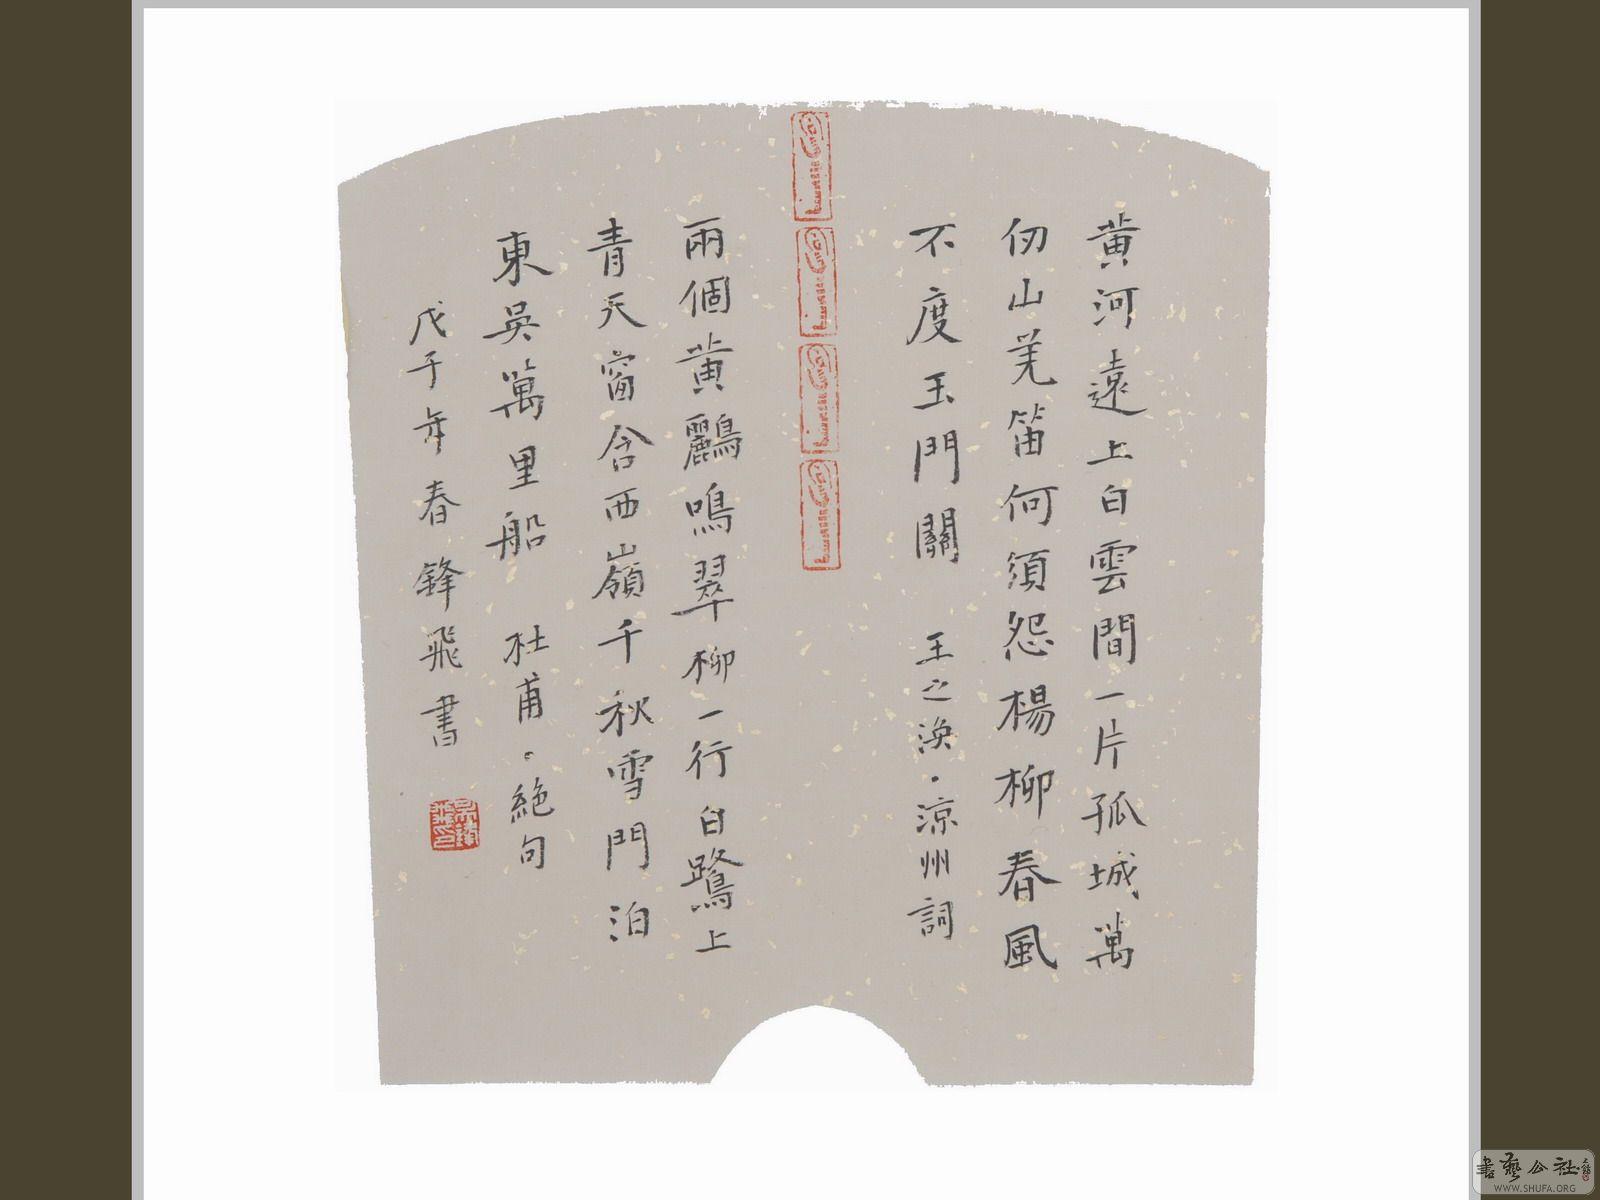 黄河遠上白雲間一片孤城萬
仞山羌笛何須怨楊柳春風
不度玉門關 王之渙·涼州詞
兩個黄鸝鳴翠柳一行白鷺上
青天窗含西嶺千秋雪門泊
東吳萬里船 杜甫·絶句
戊子年春鋒飛書
書藝公社
WWW.SHUFA.ORG